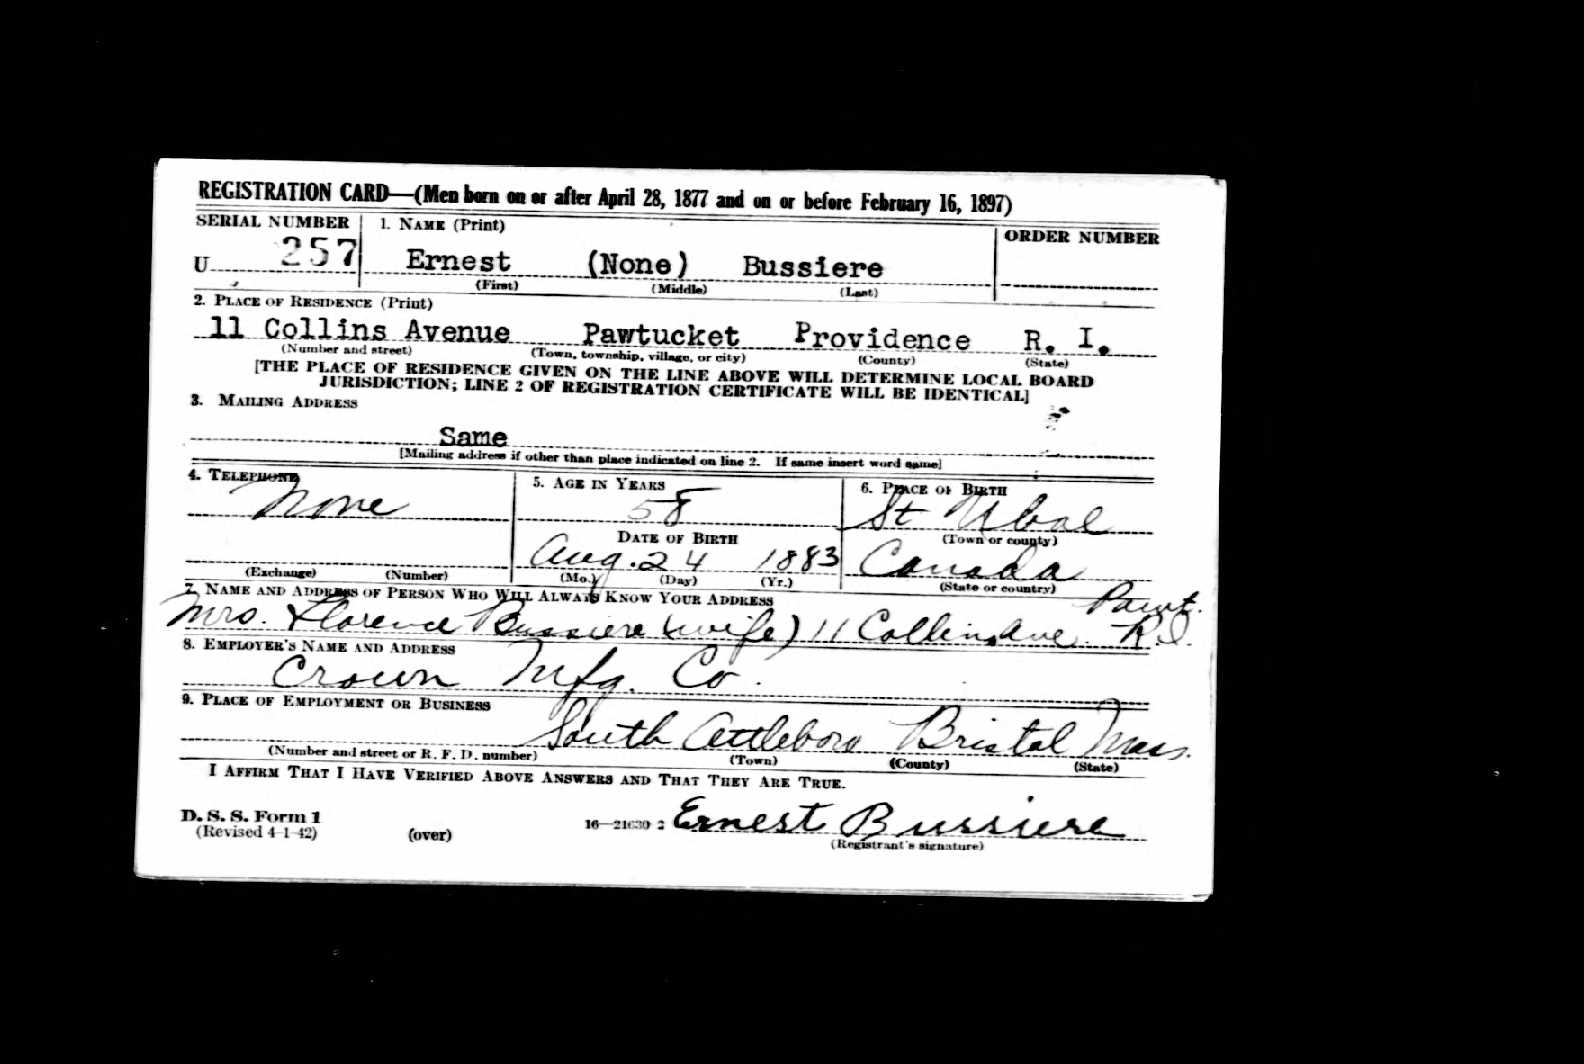 REGISTRATION CARD—(Men born on or after April 28, 1877 and on or before February 16, 1897)
SERIAL NUMBER
1. NAME (Print)
ORDER NUMBER
U 257
Ernest (None) Bussiere
(First) (Middle) (Last)
2. PLACE OF RESIDENCE (Print)
11 Collins Avenue Pawtucket Providence R. I.
(Number and street) (Town, township, village, or city) (County) (State)
[THE PLACE OF RESIDENCE GIVEN ON THE LINE ABOVE WILL DETERMINE LOCAL BOARD
JURISDICTION; LINE 2 OF REGISTRATION CERTIFICATE WILL BE IDENTICAL]
3. MAILING ADDRESS
Same
[Mailing address if other than place indicated on line 2. If same insert word same]
4. TELEPHONE
5. AGE IN YEARS
6. PLACE OF BIRTH
None
58
St
DATE OF BIRTH
(Town or county)
Aug. 24 1883
Canada
(Exchange) (Number)
(Mo.) (Day) (Yr.)
(State or country)
7. NAME AND ADDRESS OF PERSON WHO WILL ALWAYS KNOW YOUR ADDRESS
Pawt.
Mrs. Florence Bussiere (wife) 11 Collins Ave. R.I.
8. EMPLOYER'S NAME AND ADDRESS
Crown Mfg. Co.
9. PLACE OF EMPLOYMENT OR BUSINESS
South Attleboro Bristol Mass.
(Number and street or R. F. D. number) (Town) (County) (State)
I AFFIRM THAT I HAVE VERIFIED ABOVE ANSWERS AND THAT THEY ARE TRUE.
D. S. S. Form 1
(Revised 4-1-42)
(over)
16—21630-2
Ernest Bussiere
(Registrant's signature)